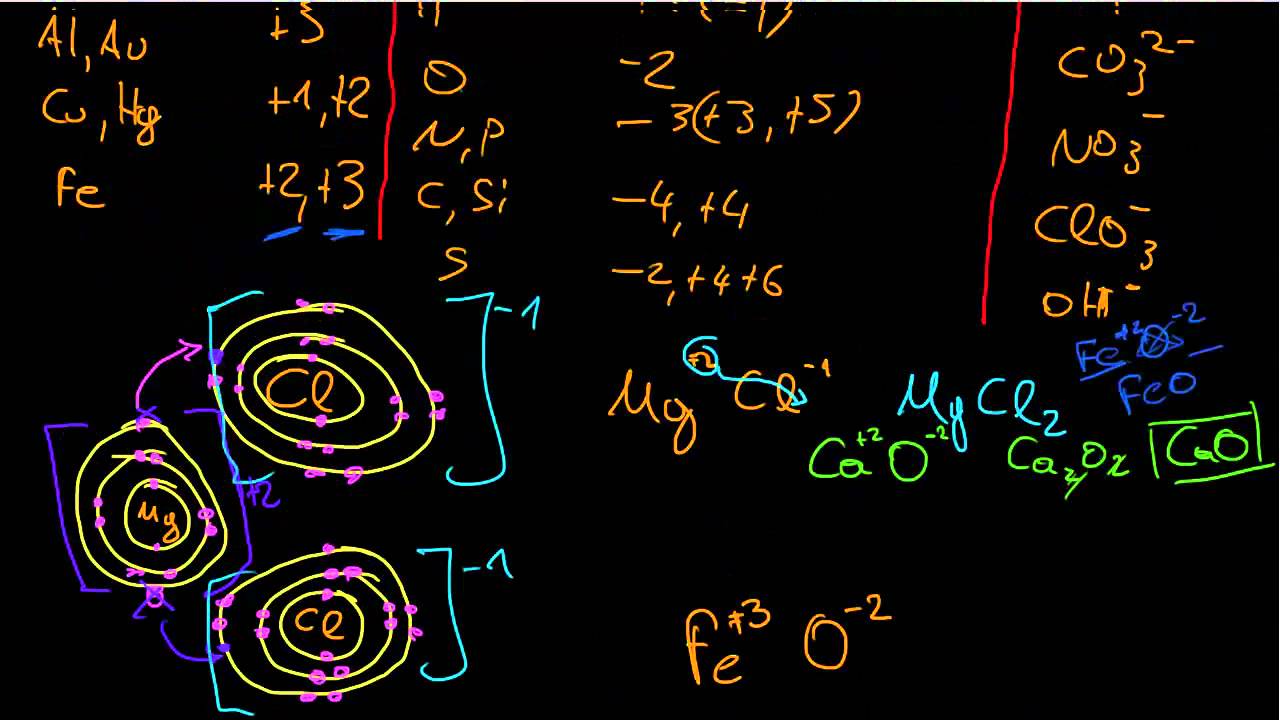 Al, Au +3
CO₃²⁻
O -2
Cu, Hg +1, +2
N, P -3(+3, +5)
NO₃⁻
Fe +2, +3
C, Si -4, +4
ClO₃⁻
S -2, +4 +6
OH⁻
Cl -1
Mg +2
Cl -1
Mg⁺² Cl⁻¹ MgCl₂
Fe⁺² O⁻²
FeO
Ca⁺² O⁻² Ca₂O₂ CaO
Fe⁺³ O⁻²